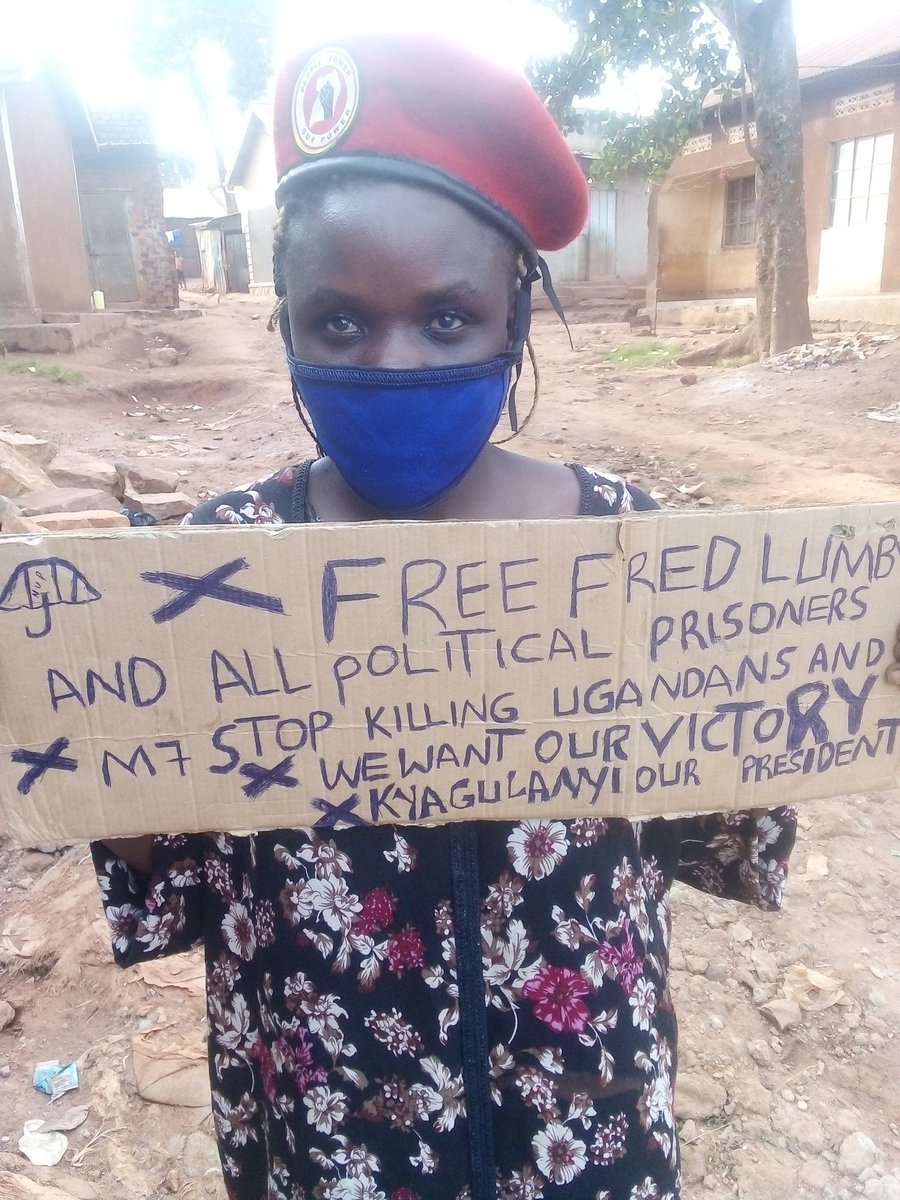 PEOPLE POWER
OUR POWER
NUP
FREE FRED LUMB
AND ALL POLITICAL PRISONERS
M7 STOP KILLING UGANDANS AND
WE WANT OUR VICTORY
KYAGULANYI OUR PRESIDENT